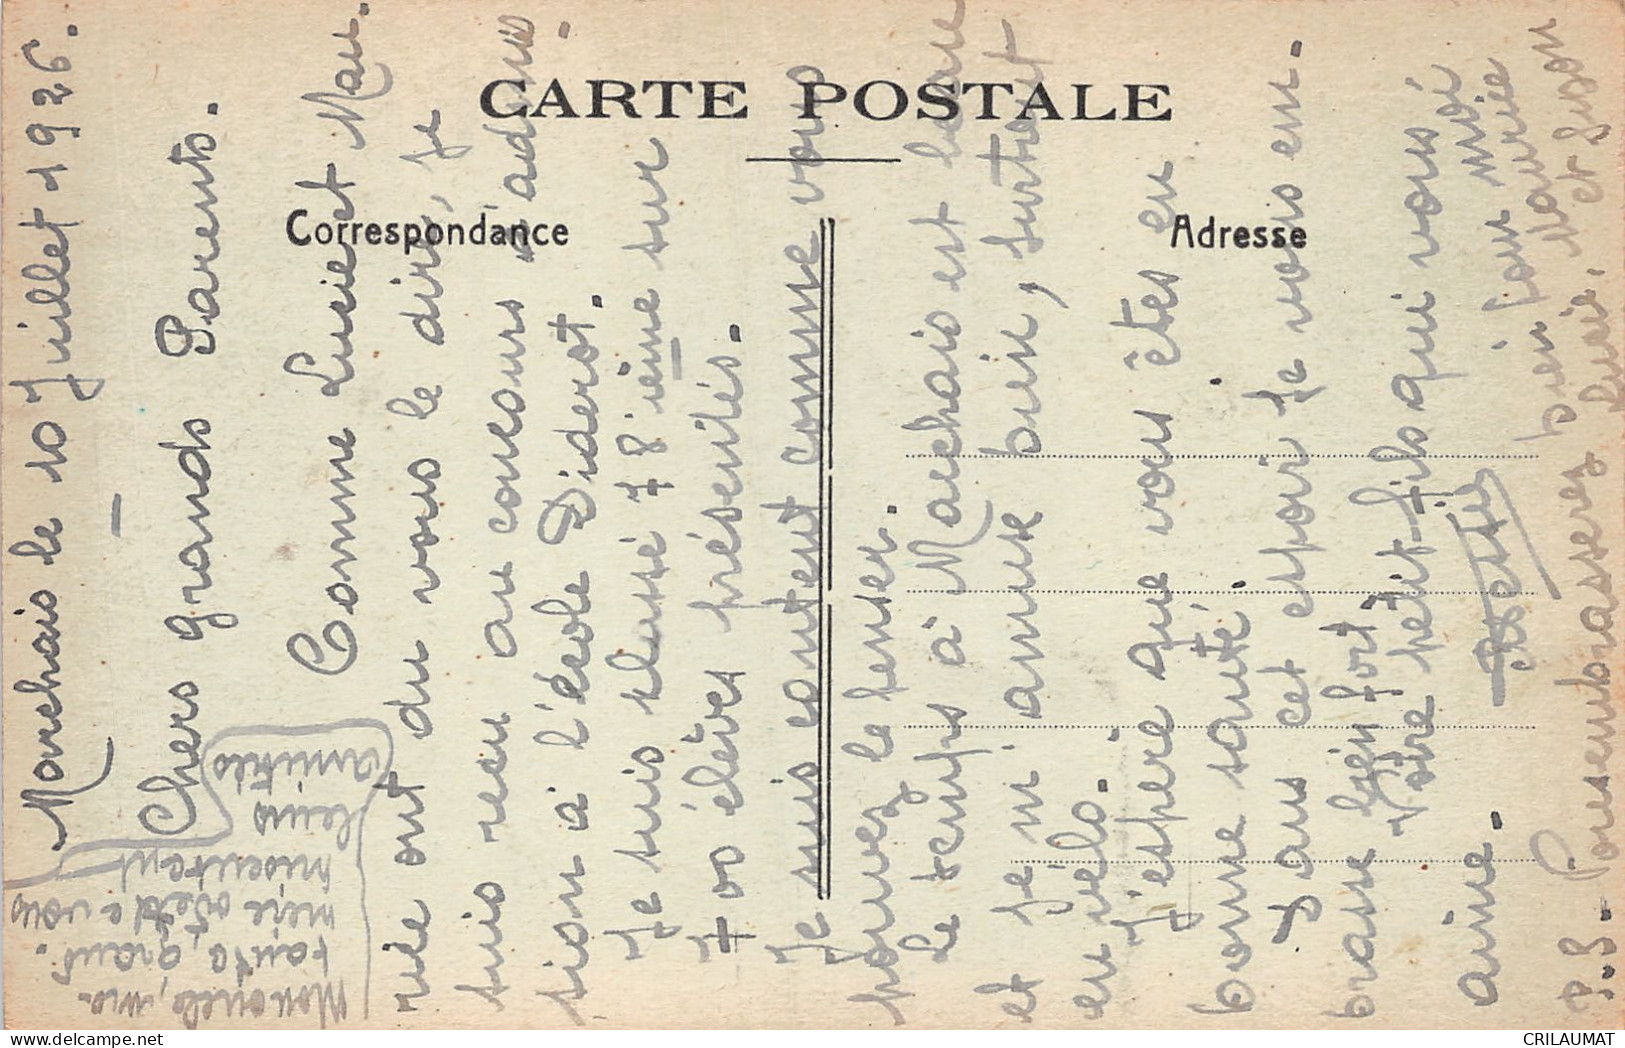 CARTE POSTALE
Correspondance
Adresse
Marchais le 10 Juillet 1926.
Chers grands Parents.
Comme Lucie et Mau-
rice ont du vous le dire, je
suis reçu au concours d'admis-
sion à l'école Diderot.
Je suis classé 78ième sur
700 élèves présentés.
Je suis content comme vous
pouvez le penser.
Le temps à Marchais est beau
et je m'amuse bien, surtout
en vélo.
J'espère que vous êtes en
bonne santé.
Dans cet espoir je vous em-
brasse bien fort
Votre petit-fils qui vous
aime.
P.S. Vous embrasserez bien pour moi
Lucie, Maurice
et Suzon
Mon oncle, ma
tante, grand-
mère et vous
présentent
leurs
amitiés
CRILAUMAT